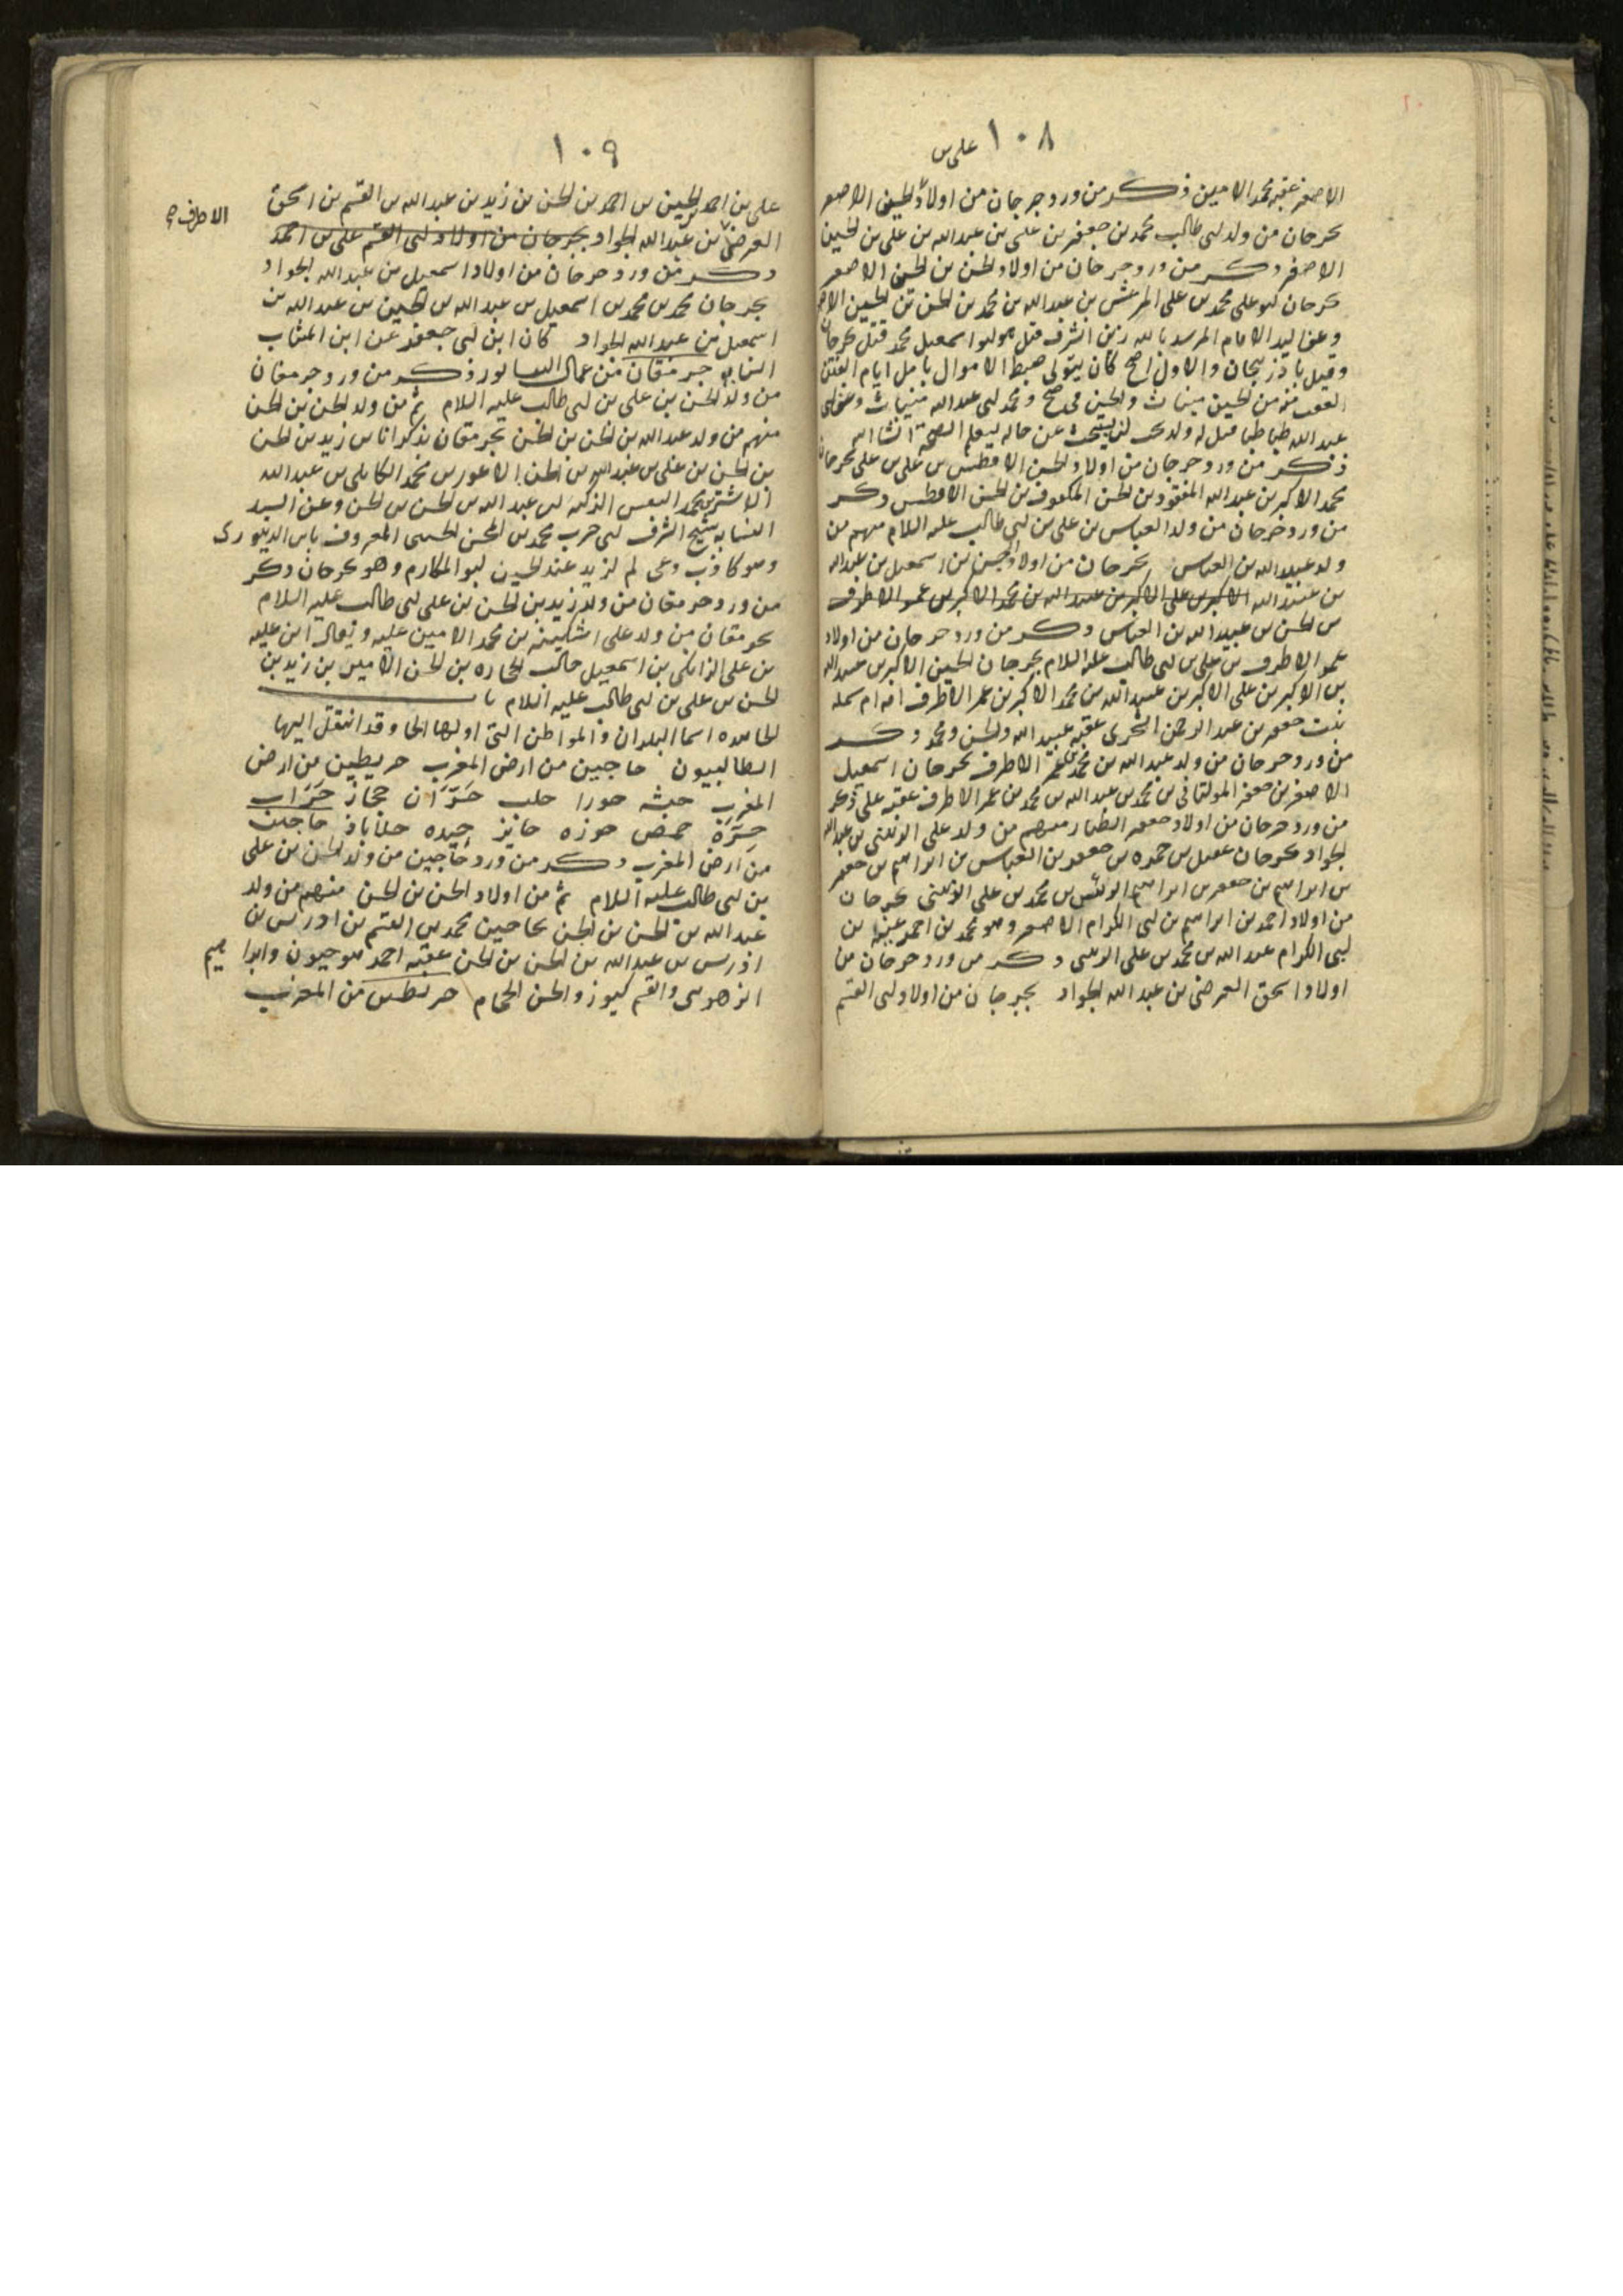 ١٠٨ على بن
الاصغر عقبه محمد الامين ذكر من ورد جرجان من اولاد الحسين الاصغر
بجرجان من ولد ابى طالب محمد بن جعفر بن على بن عبد الله بن على بن الحسين
الاصغر ذكر من ورد جرجان من اولاد الحسن بن الحسين الاصغر
بجرجان ابو على محمد بن على المرعش بن عبد الله بن محمد بن الحسن بن الحسين الاصغر
وعن السيد الامام المرشد بالله زين الشرف قتل هو ابو اسمعيل محمد قتل بجرجان
وقيل باذربيجان والاول اصح كان يتولى ضبط الاموال بامل ايام الفتن
العقب منه من الحسين ميناث والحسن محمد لابى عبد الله مينياث وعن ابى
عبد الله طباطبا قيل له ولد لن يبحث عن حاله ليعلم الصحة انشا الله
ذكر من ورد جرجان من اولاد الحسن الافطس بن على بن على بجرجان
محمد الاكبر بن عبد الله المفقود بن الحسن المكفوف بن الحسن الافطس ذكر
من ورد جرجان من ولد العباس بن على بن ابى طالب عليه السلام منهم من
ولد عبيد الله بن العباس بجرجان من اولاد الحسن بن اسمعيل بن عبد الله
بن عبيد الله الاكبر بن على الاكبر بن عبيد الله بن محمد الاكبر بن عمر الاطرف
بن الحسن بن عبيد الله بن العباس ذكر من ورد جرجان من اولاد
عمر الاطرف بن على بن ابى طالب عليه السلام بجرجان الحسين الاكبر بن عبد الله
بن الاكبر بن على الاكبر بن عبيد الله بن محمد الاكبر بن عمر الاطرف امه ام سلمه
بنت جعفر بن عبد الرحمن الشجرى عقبه عبيد الله والحسن ومحمد ذكر
من ورد جرجان من ولد عبد الله بن محمد بن عمر الاطرف بجرجان اسمعيل
الاصغر بن جعفر المولتانى بن محمد بن عبد الله بن محمد بن عمر الاطرف عقبه على ذكر
من ورد جرجان من اولاد جعفر الطيار منهم من ولد على الزينبى بن عبد الله
الجواد بجرجان عقيل بن حمزه بن جعفر بن العباس بن ابراهيم بن جعفر
بن ابراهيم بن جعفر بن ابراهيم الرئيس بن محمد بن على الزينبى بجرجان
من اولاد احمد بن ابراهيم بن ابى الكرام الاصغر وهو محمد بن احمد عينه بن
ابى الكرام عبد الله بن محمد بن على الزينبى ذكر من ورد جرجان من
اولاد اسحق العرضى بن عبد الله الجواد بجرجان من اولاد ابى القسم
١٠٩
على بن احمد الحسين بن احمد بن الحسن بن زيد بن عبد الله بن القسم بن اسحق
الاطرف صح
العرضى بن عبد الله الجواد بجرجان من اولاد ابى القسم على بن احمد
ذكر من ورد جرجان من اولاد اسمعيل بن عبد الله الجواد
بجرجان محمد بن محمد بن اسمعيل بن عبد الله بن الحسين بن عبد الله بن
اسمعيل بن عبد الله الجواد كان ابن ابى جعفر عن ابن المثاب
النسابه جرمقان من عمال النيسابور ذكر من ورد جرمقان
من ولد الحسن بن على بن ابى طالب عليه السلام ثم من ولد الحسن بن الحسن
منهم من ولد عبد الله بن الحسن بن الحسن بجرمقان بذكوانا بن زيد بن الحسن
بن الحسن بن على بن عبد الله بن الحسن الاعور بن محمد الكابلى بن عبد الله
الاشتر بن محمد النفس الزكيه بن عبد الله بن الحسن بن الحسن وعن السيد
النسابه شيخ الشرف ابى حرب محمد بن الحسن الحسينى المعروف بابن الدينورى
وهو كاذب دعى لم لزيد عند الحسين ابو المكارم وهو بجرجان ذكر
من ورد جرمقان من ولد زيد بن الحسن بن على بن ابى طالب عليه السلام
بجرمقان من ولد على اشكينه بن محمد الامين عليه ويقال ابن عليه
بن على الزانكى بن اسمعيل حالب الحجاره بن الحسن الامير بن زيد بن
الحسن بن على بن ابى طالب عليه السلام باب
الحا هذه اسما البلدان والمواطن التى اولها الحا وقد انتقل اليها
الطالبيون حاجين من ارض المغرب حريطين من ارض
المغرب حبشه حورا حلب حَرّان حجاز حَرّاب
حَرَّة حمص حوزه حائز حيده حلاباذ حاجين
من ارض المغرب ذكر من ورد حاجين من ولد الحسن بن على
بن ابى طالب عليه السلام ثم من اولاد الحسن بن الحسن منهم من ولد
عبد الله بن الحسن بن الحسن بحاجين محمد بن القسم بن ادريس بن
ادريس بن عبد الله بن الحسن بن الحسن عقبه احمد هو جيون وابراهيم
الزهونى والقسم كيوز والحسن الحجام حريطين من المغرب